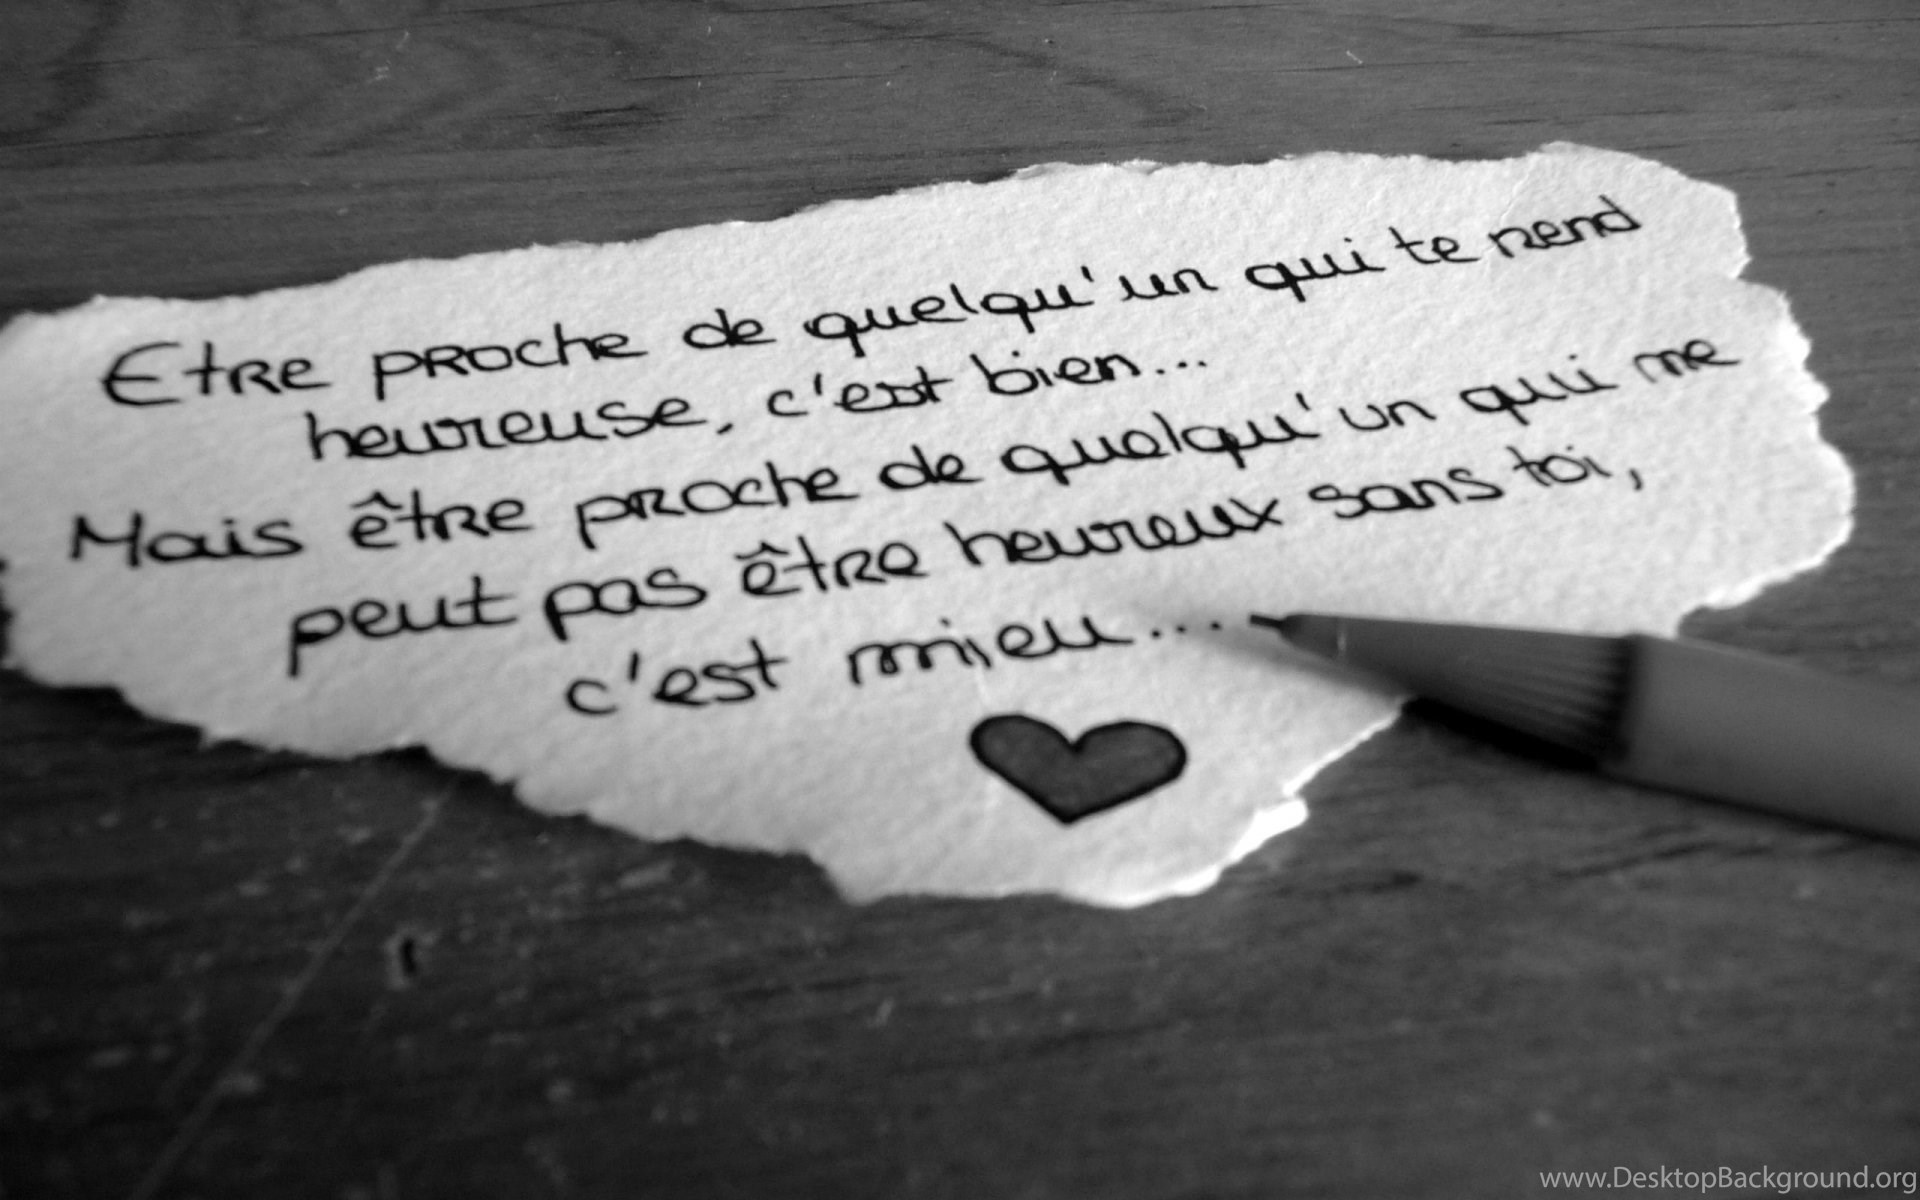 Etre proche de quelqu'un qui te rend
heureuse, c'est bien...
Mais être proche de quelqu'un qui me
peut pas être heureux sans toi,
c'est mieu...
www.DesktopBackground.org